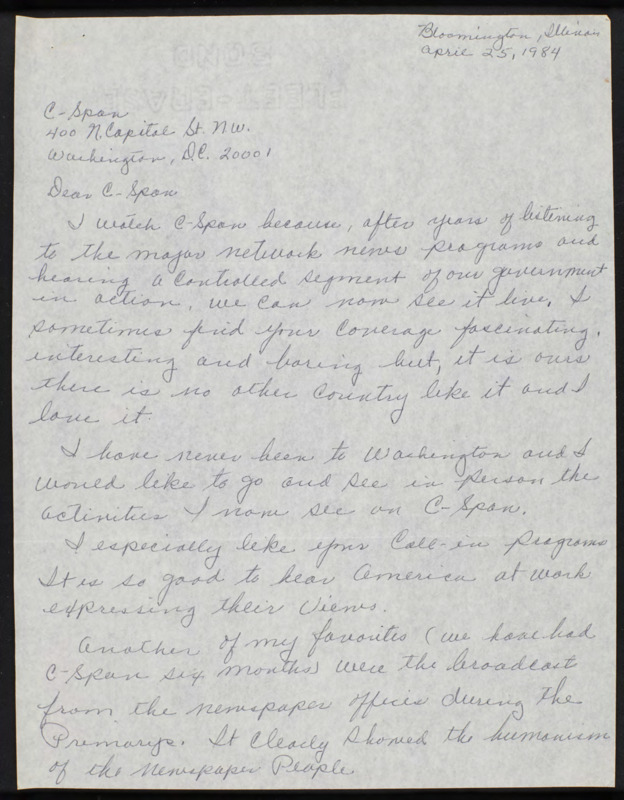 Bloomington, Illinois
April 25, 1984
C-Span
400 N. Capitol St. N.W.
Washington, D.C. 20001
Dear C-Span
I watch C-Span because, after years of listening
to the major network news programs and
hearing a controlled segment of our government
in action, we can now see it live. I
sometimes find your coverage fascinating,
interesting and boring but, it is ours
there is no other country like it and I
love it.
I have never been to Washington and I
would like to go and see in person the
activities I now see on C-Span.
I especially like your Call-in programs
It is so good to hear America at work
expressing their views.
Another of my favorites (we have had
C-Span six months) were the broadcast
from the newspaper offices during the
Primarys. It clearly showed the humanism
of the Newspaper People